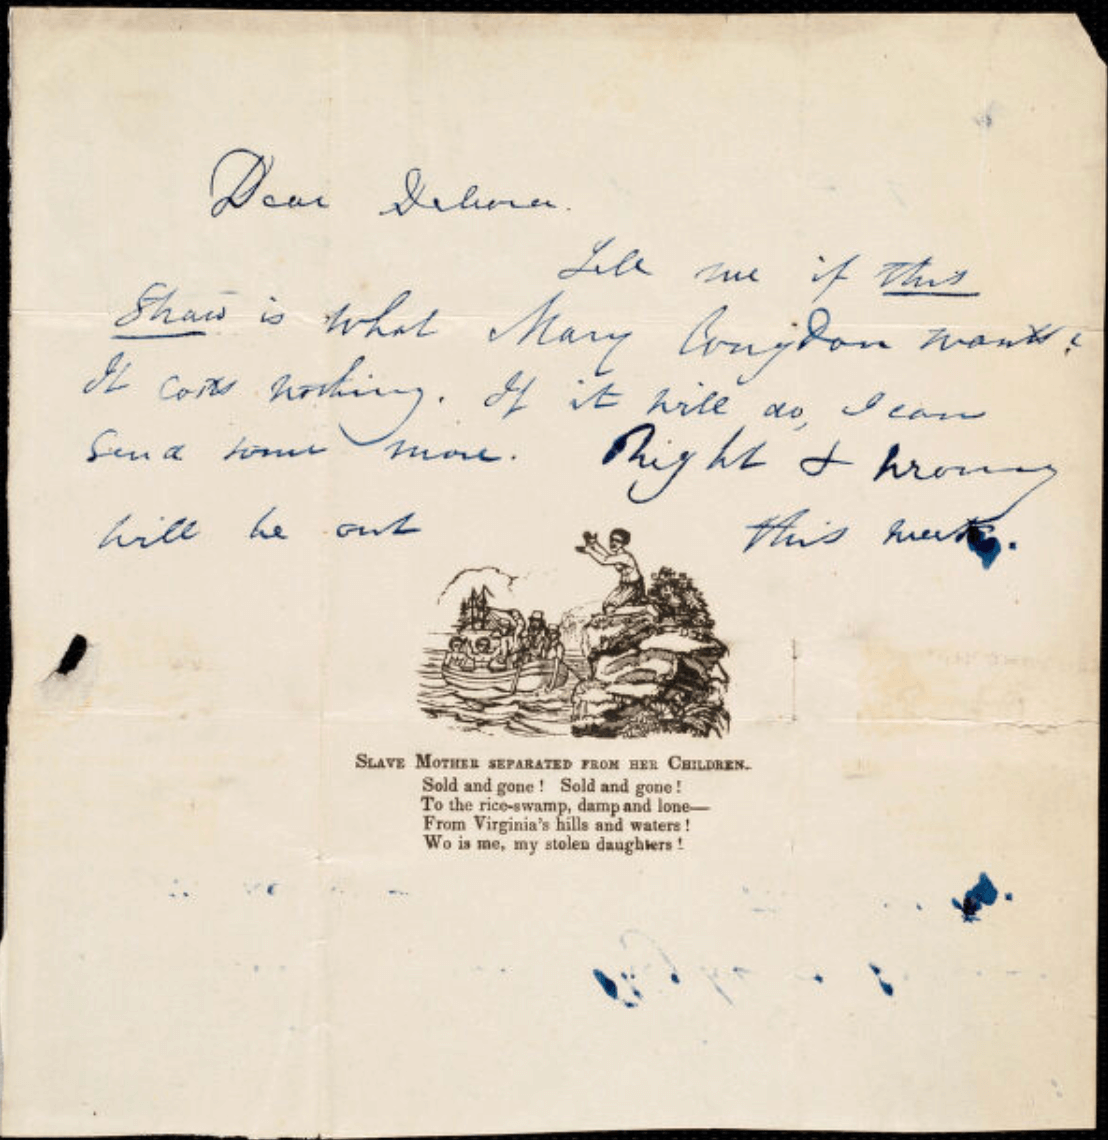 Dear Debora.
Tell me if this
Straw is what Mary Congdon wants?
It costs nothing. If it will do, I can
send some more. Right & wrong
will be out this week.
SLAVE MOTHER SEPARATED FROM HER CHILDREN.
Sold and gone! Sold and gone!
To the rice-swamp, damp and lone—
From Virginia's hills and waters!
Wo is me, my stolen daughters!